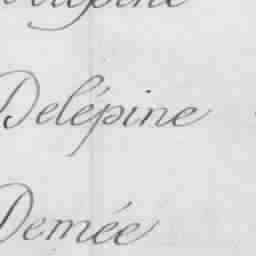 Delépine
Demée